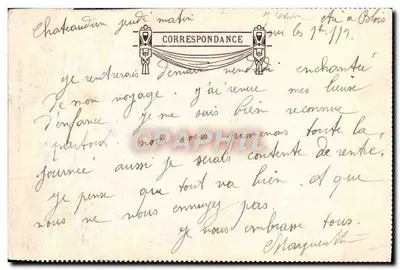 Chateaudun jeudi matin
été à Blois
sur les
CORRESPONDANCE
je rentrerais demain vendredi enchantée
de mon voyage. j'ai revue mes lieux
d'enfance je me suis bien reconnue
partout nous nous promenons toute la
journée aussi je serais contente de rentré.
je pense que tout va bien et que
vous ne vous ennuyez pas.
je vous embrasse tous.
Marguerite
CARTAPHIL